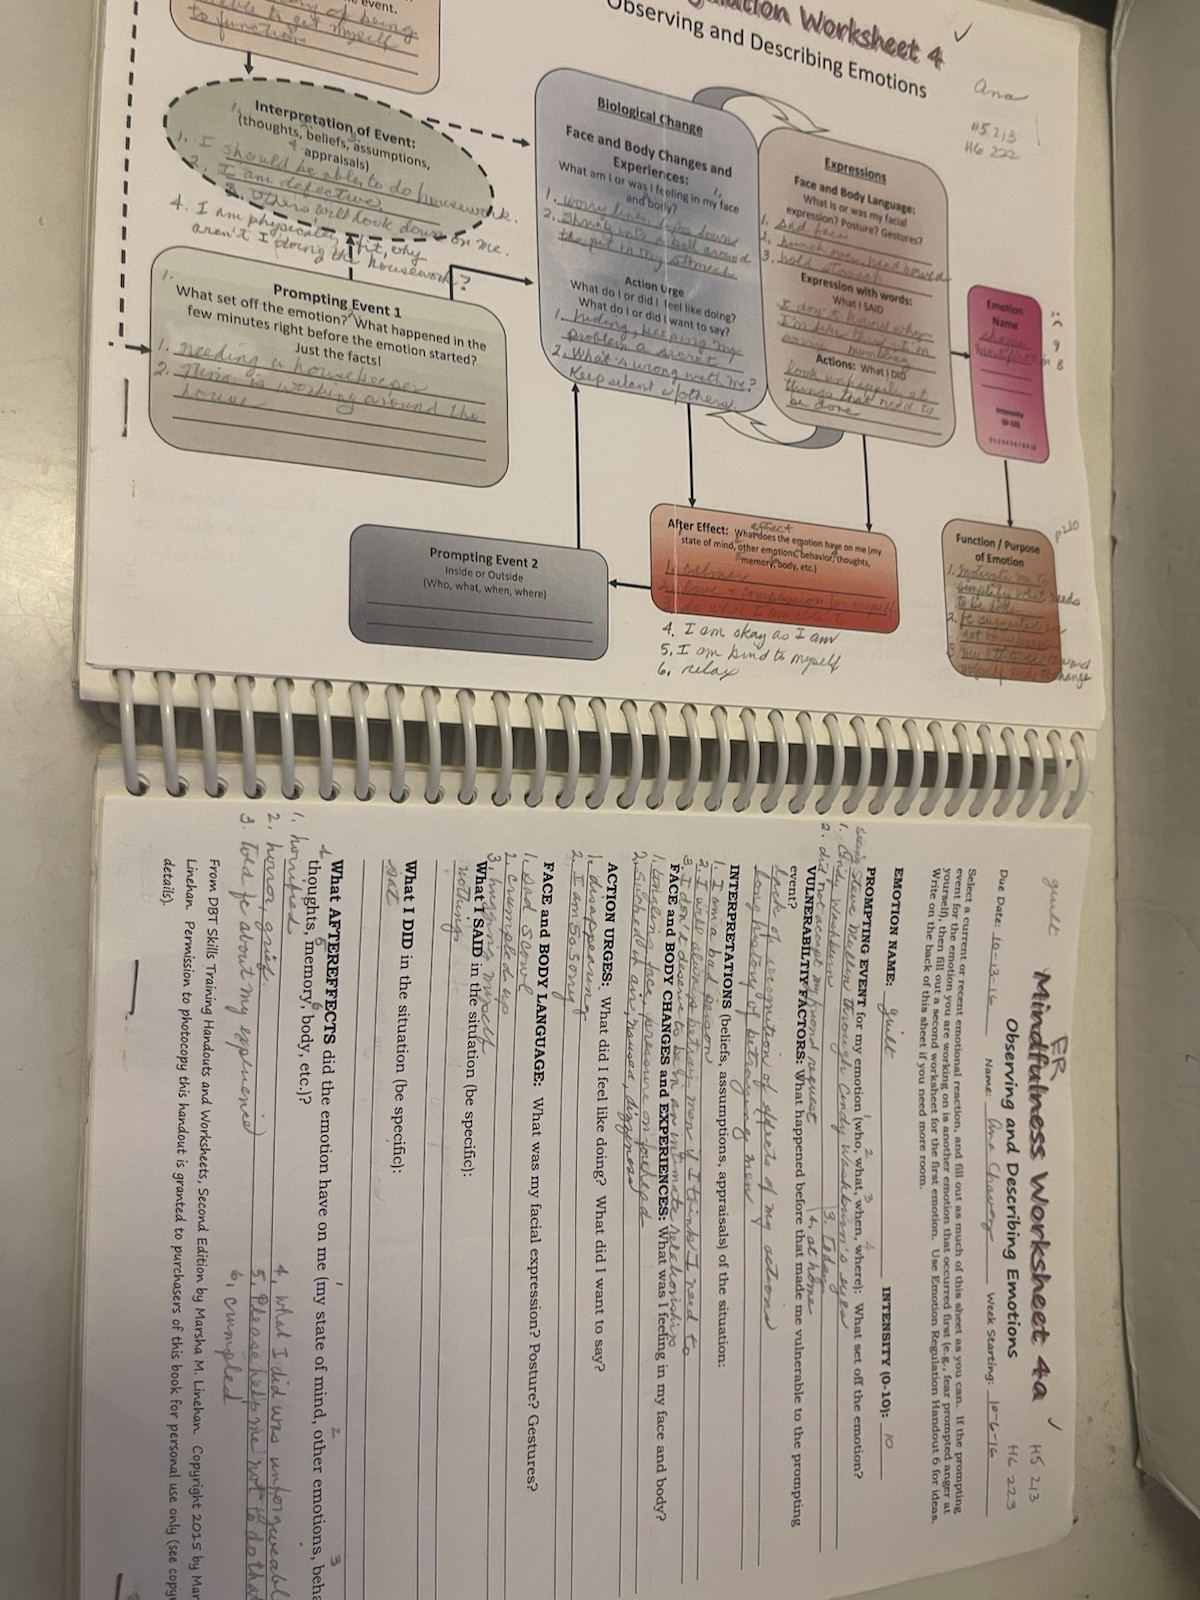 e event.
of being
able to get myself
to function
Regulation Worksheet 4
Observing and Describing Emotions
Ana
HS 213
HG 222
Interpretation of Event:
(thoughts, beliefs, assumptions,
appraisals)
1. I should be able to do housework.
2. I am defective
3. Others will look down on me.
4. I am physically fit, why
aren't I doing the housework?
1.
Prompting Event 1
What set off the emotion? What happened in the
few minutes right before the emotion started?
Just the facts!
1. needing a housekeeper
2. is working around the
house
Biological Change
Face and Body Changes and
Experiences:
What am I or was I feeling in my face
and body?
1. worry lines, lips down
2. shrink into a ball around
the pit in my stomach
Action Urge
What do I or did I feel like doing?
What do I or did I want to say?
1. hiding, keeping my
problem a secret
2. What's wrong with me?
Keep silent w/others
Expressions
Face and Body Language:
What is or was my facial
expression? Posture? Gestures?
1. sad face
2. hunch over, head bowed
3. hold stomach
Expression with words:
What I SAID
I don't know why
I'm like this
sorry mumbling
Actions: What I DID
look unhappily at
things that need to
be done
Emotion
Name
shame
mortification
9
8
Intensity
(0-10)
0 1 2 3 4 5 6 7 8 9 10
Prompting Event 2
Inside or Outside
(Who, what, when, where)
effect
After Effect: What does the emotion have on me (my
state of mind, other emotions, behavior, thoughts,
memory, body, etc.)
1. calmer
2. love + compassion for myself
3. do what I am able to
4. I am okay as I am
5. I am kind to myself
6. relax
p210
Function / Purpose
of Emotion
1. motivate me to
simplify what needs
to be done
2.
not
3. my attitude toward
myself needs to change
guilt
Mindfulness Worksheet 4a
ER
HS 213
HG 223
Observing and Describing Emotions
Due Date: 10-13-16 Name: Ana Chavez Week Starting: 10-6-16
Select a current or recent emotional reaction, and fill out as much of this sheet as you can. If the prompting
event for the emotion you are working on is another emotion that occurred first (e.g., fear prompted anger at
yourself), then fill out a second worksheet for the first emotion. Use Emotion Regulation Handout 6 for ideas.
Write on the back of this sheet if you need more room.
EMOTION NAME: guilt INTENSITY (0-10): 10
PROMPTING EVENT for my emotion (who, what, when, where): What set off the emotion?
seeing Steve Mullen through Cindy Washburn's eyes
1. Cindy Washburn 3. Today
2. did not accept my friend request 4. at home
VULNERABILITY FACTORS: What happened before that made me vulnerable to the prompting
event?
lack of recognition of effects of my actions
long history of betraying men
INTERPRETATIONS (beliefs, assumptions, appraisals) of the situation:
1. I am a bad person
2. I will always betray men if I think I need to
3. I don't deserve to be in an intimate relationship
FACE and BODY CHANGES and EXPERIENCES: What was I feeling in my face and body?
1. tingling face, pressure on forehead
2. sucked in air, nausea, dizziness
ACTION URGES: What did I feel like doing? What did I want to say?
1. disappearing
2. I am so sorry
FACE and BODY LANGUAGE: What was my facial expression? Posture? Gestures?
1. sad scowl
2. crumpled up
3. hugging myself
What I SAID in the situation (be specific):
nothing
What I DID in the situation (be specific):
sat
What AFTEREFFECTS did the emotion have on me (my state of mind, other emotions, beha
thoughts, memory, body, etc.)?
1. horrified
2. horror, grief
3. told Jc about my experience
4. what I did was unforgiveabl
5. Please help me not to do that
6. crumpled
From DBT Skills Training Handouts and Worksheets, Second Edition by Marsha M. Linehan. Copyright 2015 by Mar
Linehan. Permission to photocopy this handout is granted to purchasers of this book for personal use only (see copy
details).